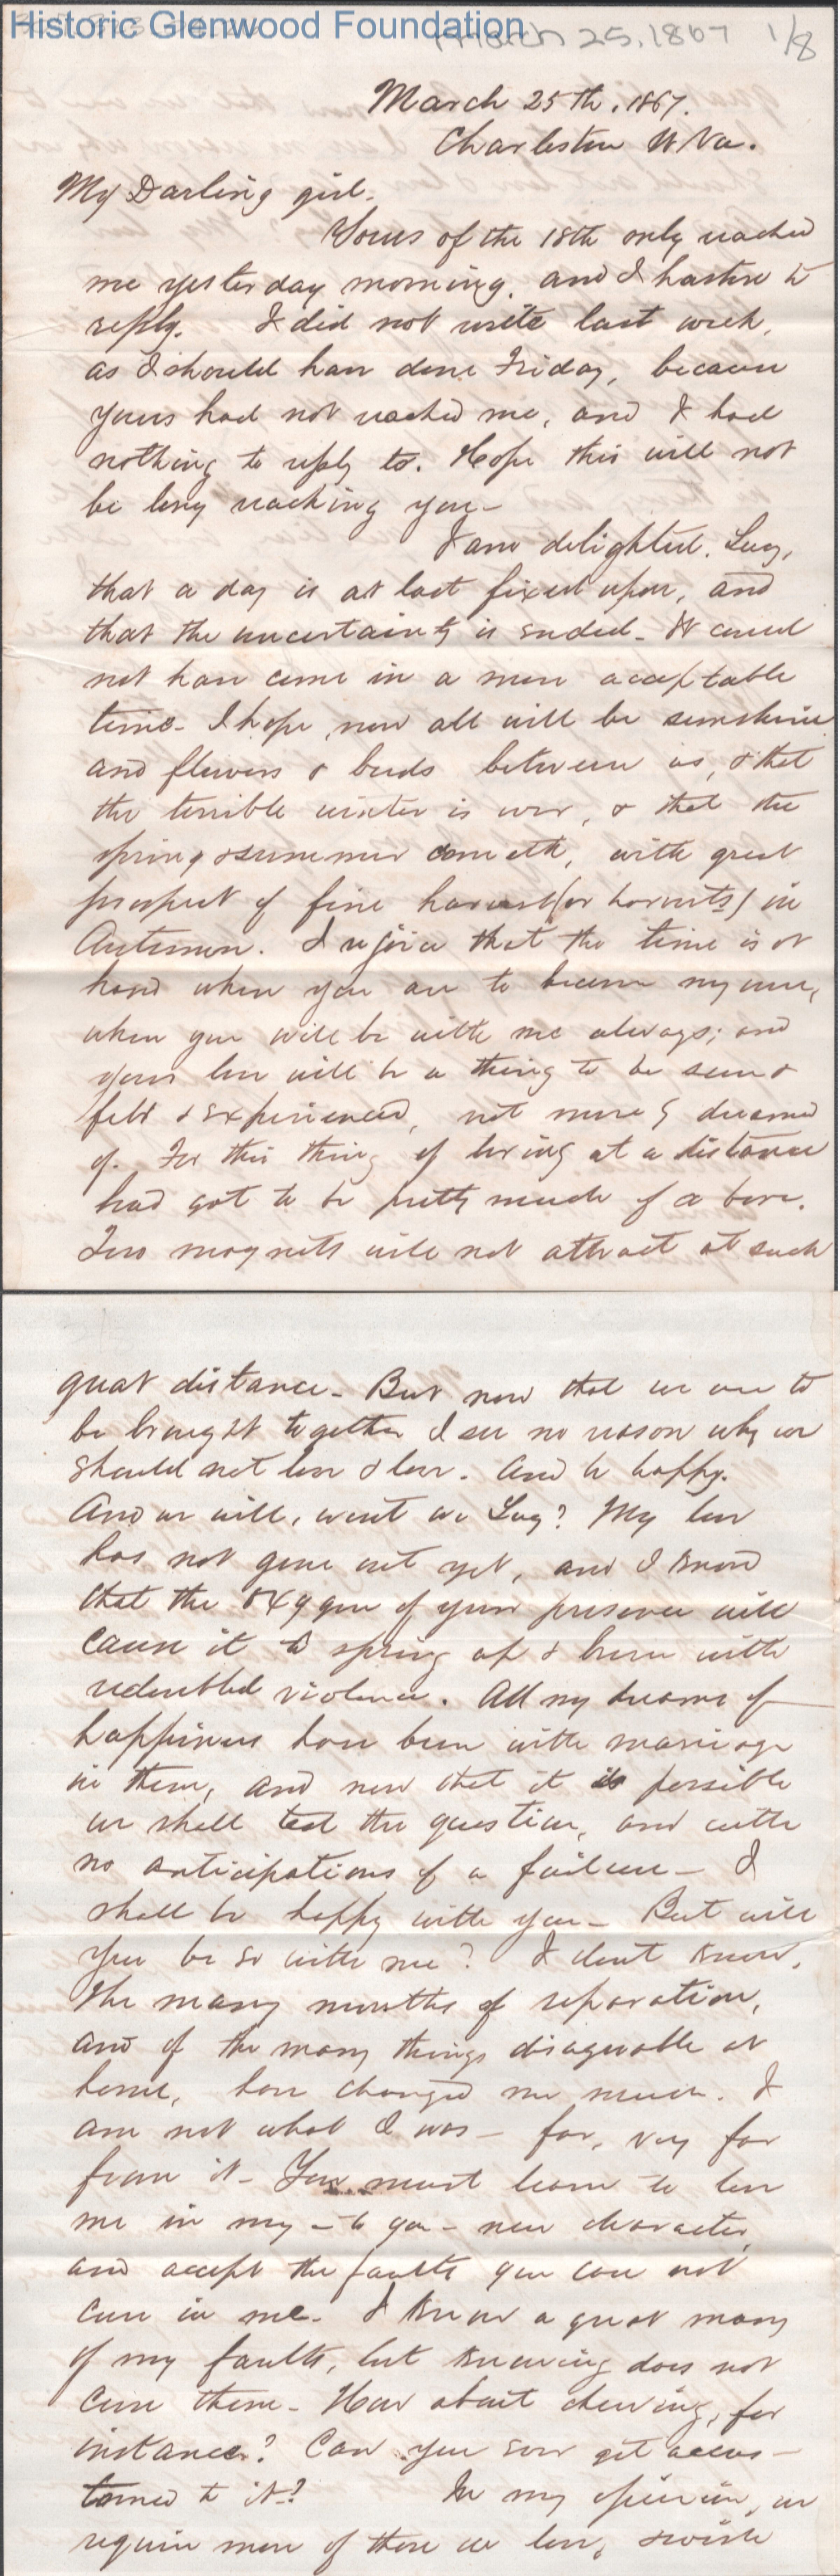 Historic Glenwood Foundation
March 25, 1867 1/8
March 25th. 1867.
Charleston W Va.
My Darling girl.
Yours of the 18th only reached
me yesterday morning. and I hasten to
reply. I did not write last week,
as I should have done Friday, because
yours had not reached me, and I had
nothing to reply to. Hope this will not
be long reaching you –
I am delighted. Lucy,
that a day is at last fixed upon, and
that the uncertainty is ended – It could
not have come in a more acceptable
time – I hope now all will be sunshine
and flowers & birds between us, & that
the terrible winter is over, & that the
spring & summer cometh, with great
prospect of fine harvest (or harvests) in
Autumn. I rejoice that the time is at
hand when you are to become my own,
when you will be with me always; and
your love will be a thing to be seen &
felt & experienced, not merely dreamed
of. For this thing of loving at a distance
had got to be pretty much of a bore.
Two magnets will not attract at such
great distance – But now that we are to
be brought together I see no reason why we
should not love & love. And be happy.
And we will, wont we Lucy? My love
has not gone out yet, and I know
that the oxygen of your presence will
cause it to spring up & burn with
redoubled violence. All my dreams of
happiness have been with marriage
in them, and now that it is possible
we shall test the question, and with
no anticipations of a failure – I
shall be happy with you – But will
you be so with me? I dont know.
The many months of separation,
and of the many things disagreeable at
home, have changed me much. I
am not what I was – far, very far
from it – You must learn to love
me in my – to you – new character,
and accept the faults you can not
cure in me. I know a great many
of my faults, but knowing does not
cure them – How about chewing, for
instance? Can you ever get accus –
tomed to it? In my opinion, we
require more of those we love, & wish